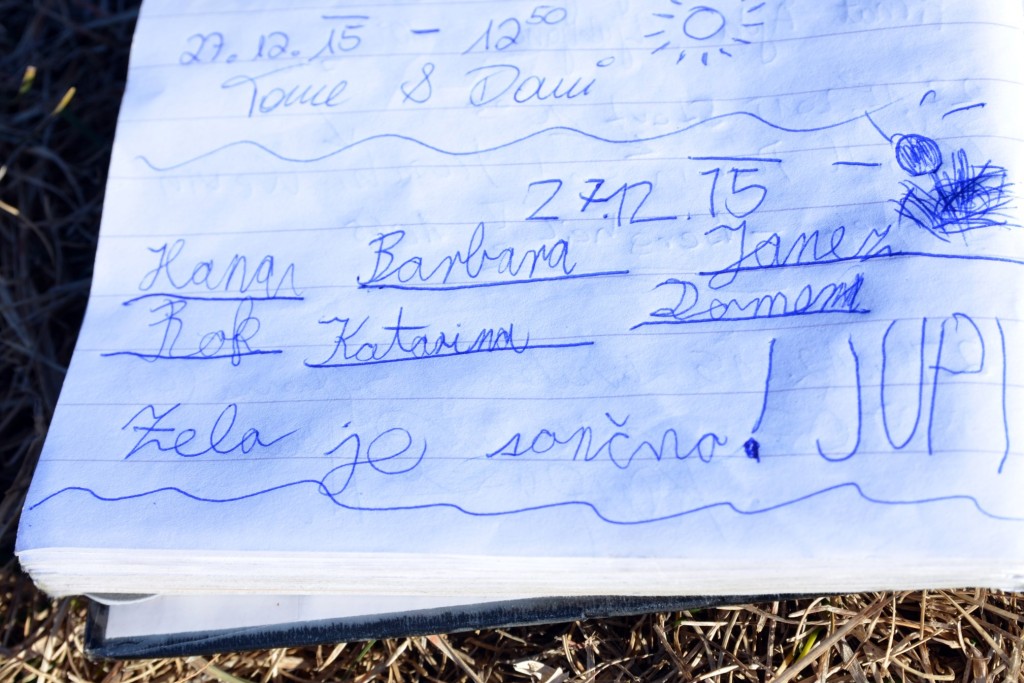 27.12.15 - 12⁵⁰
Tome & Dani
27.12.15
Hana Barbara Janez
Rok Katarina Domen
Zelo je sončno! JUPI